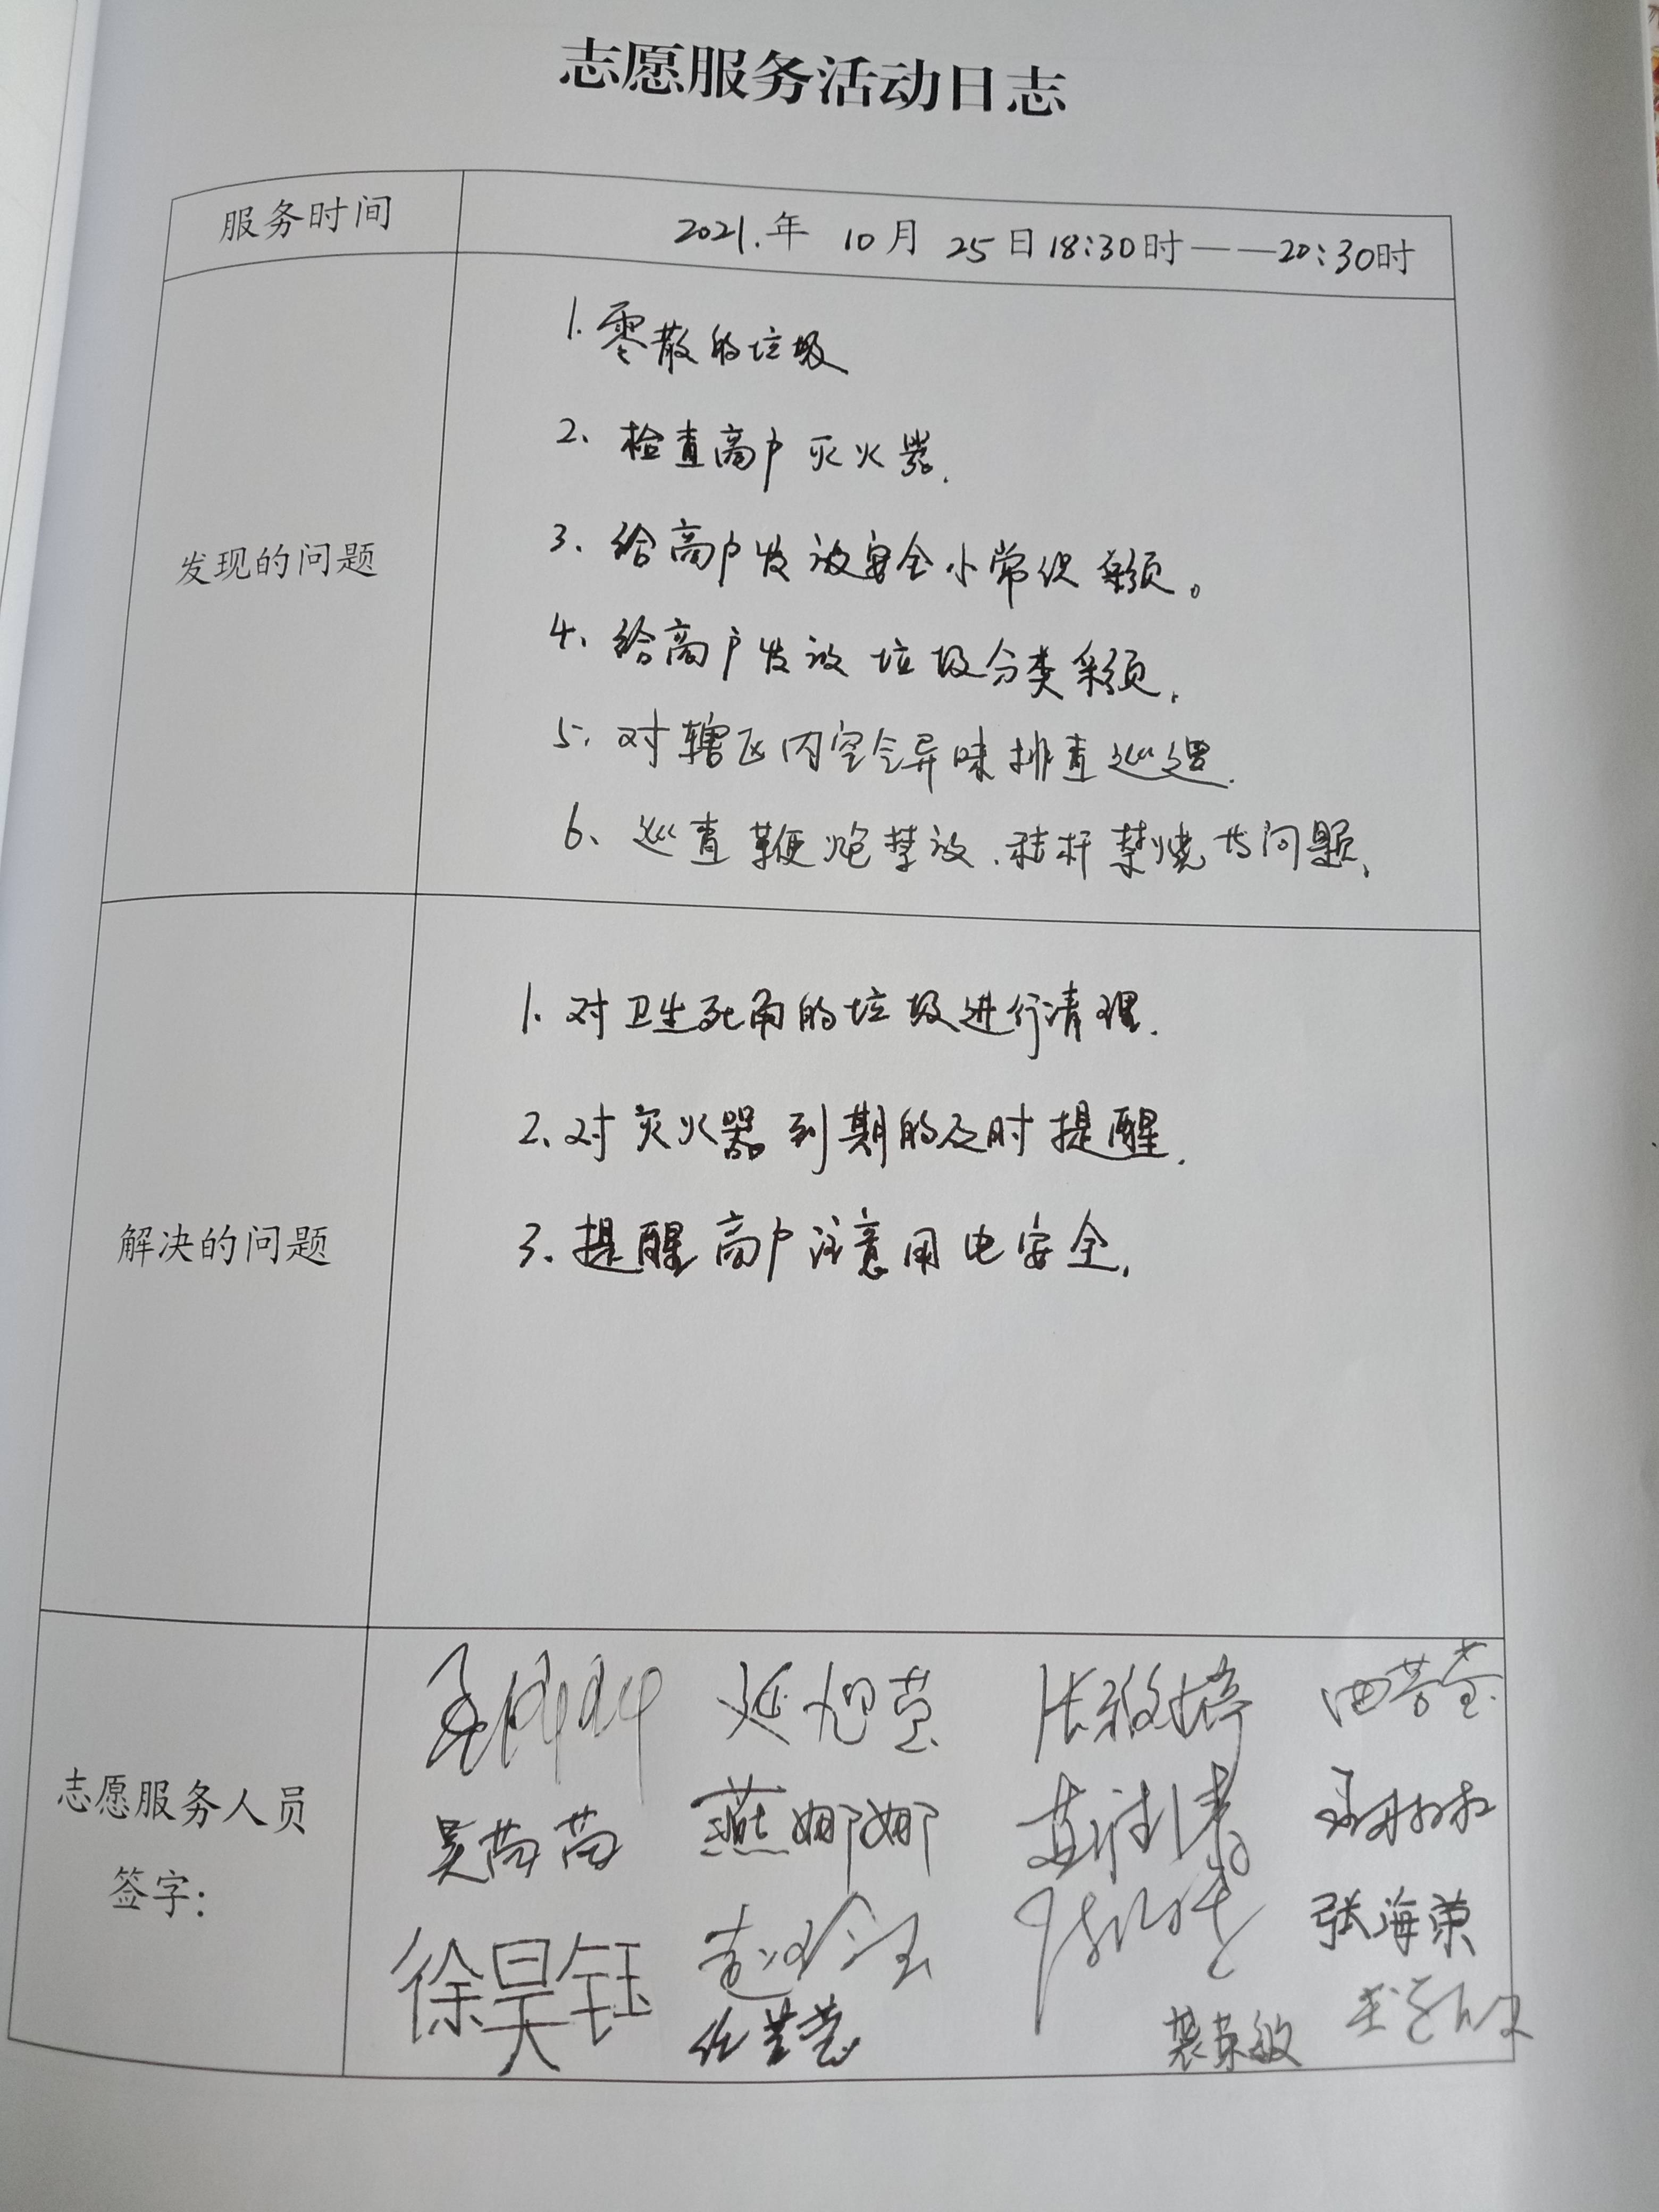 志愿服务活动日志
服务时间
2021.年 10月 25日18:30时——20:30时
发现的问题
1.零散的垃圾
2、检查商户灭火器.
3、给商户发放安全小常识彩页。
4、给商户发放垃圾分类彩页.
5、对辖区内空气异味排查巡逻.
6、巡查鞭炮禁放、秸秆禁烧等问题、
解决的问题
1.对卫生死角的垃圾进行清理.
2、对灭火器到期的及时提醒.
3、提醒商户注意用电安全.
志愿服务人员
签字:
吴苗苗 燕娜娜
徐昊钰 张海荣